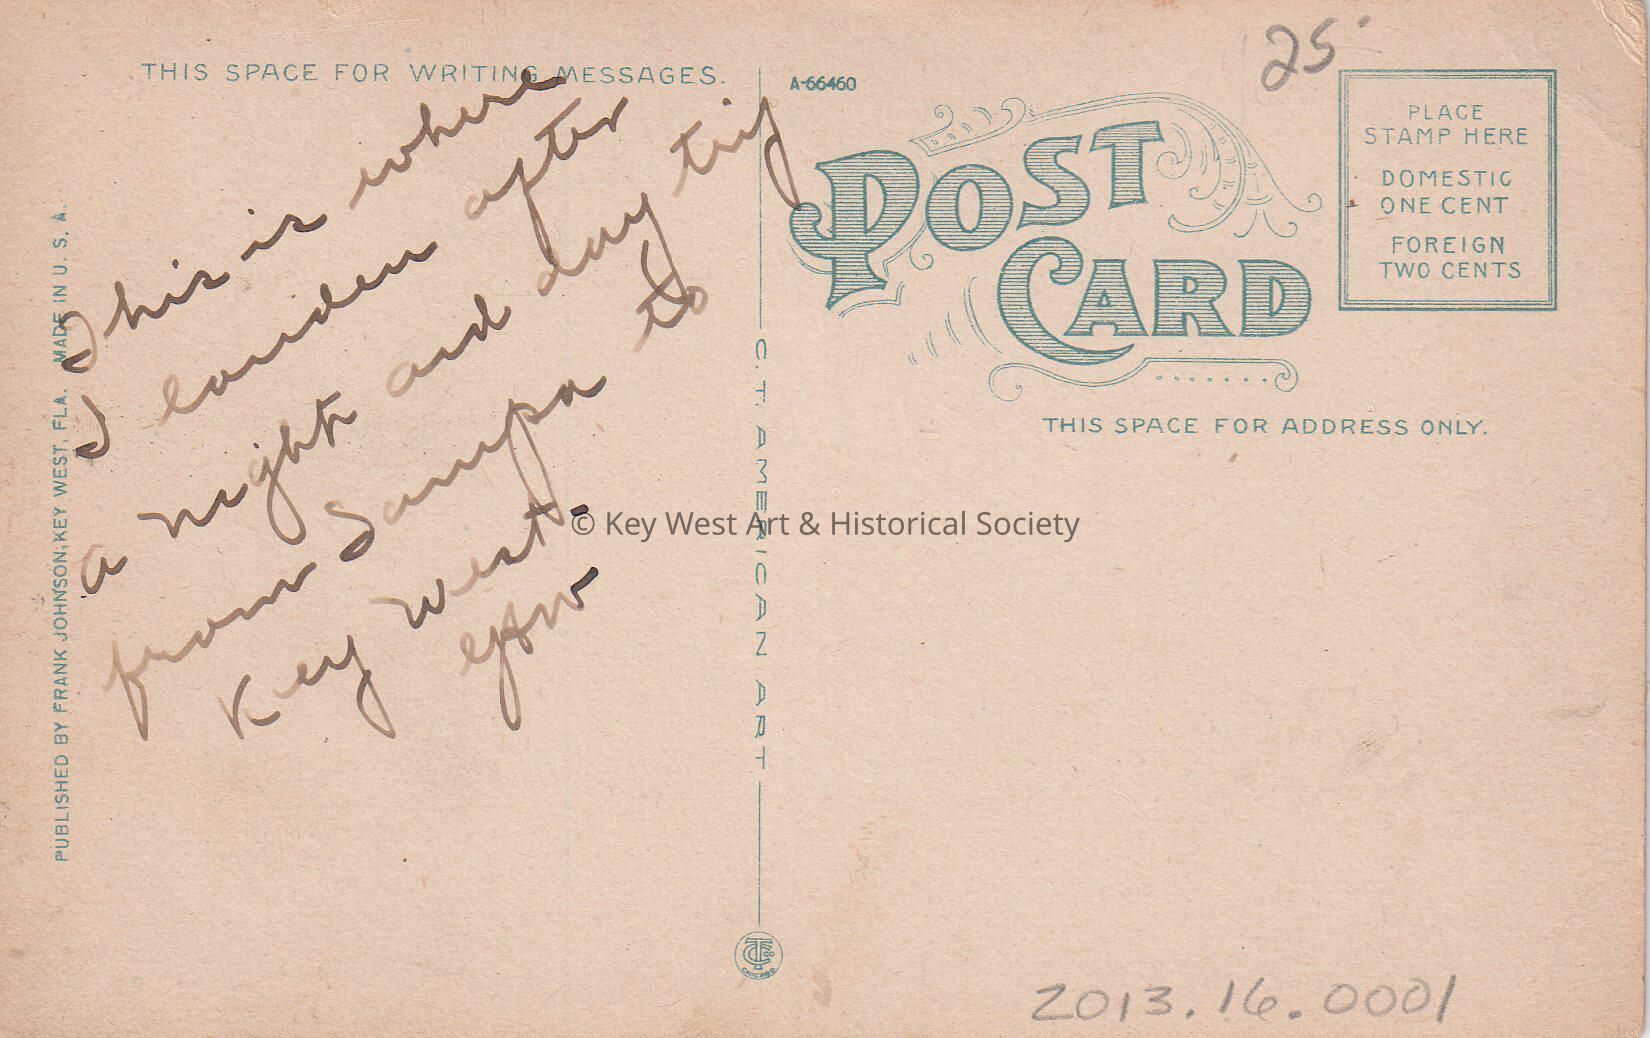 THIS SPACE FOR WRITING MESSAGES.
This is where
I landen after
a night and day trip
from Tampa to
Key West.
PUBLISHED BY FRANK JOHNSON, KEY WEST, FLA. MADE IN U. S. A.
C. T. AMERICAN ART
CHICAGO
A-66460
25
POST
CARD
PLACE
STAMP HERE
DOMESTIC
ONE CENT
FOREIGN
TWO CENTS
THIS SPACE FOR ADDRESS ONLY.
© Key West Art & Historical Society
2013.16.0001